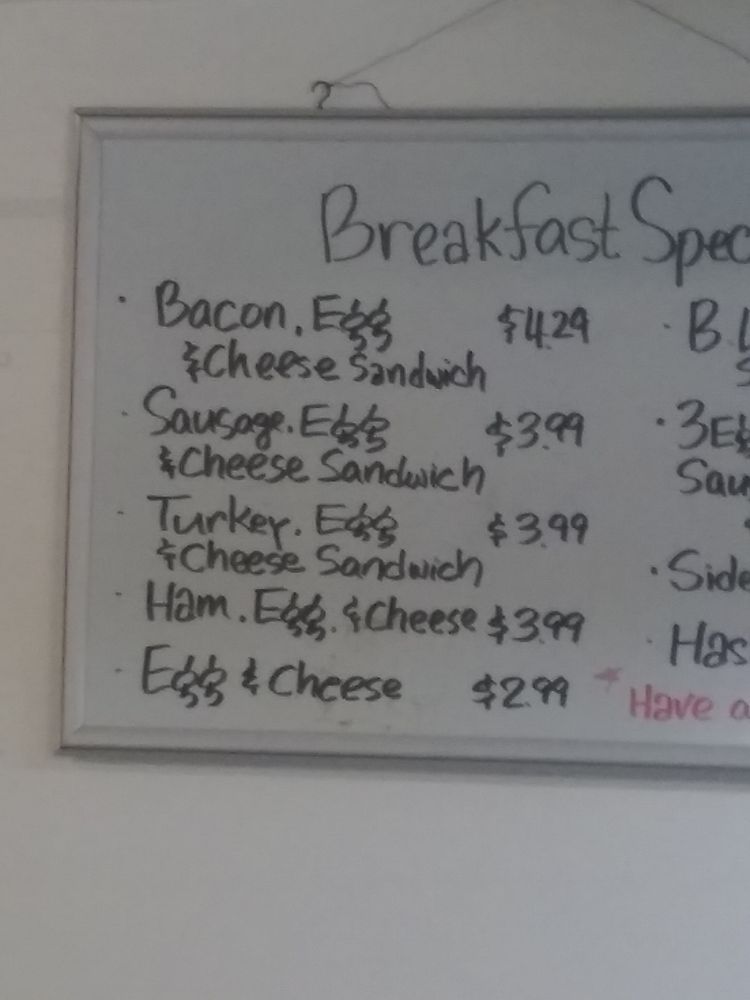 Breakfast Spec
· Bacon, Egg $4.29
& Cheese Sandwich
· Sausage, Egg $3.99
& Cheese Sandwich
· Turkey, Egg $3.99
& Cheese Sandwich
· Ham, Egg, & Cheese $3.99
· Egg & Cheese $2.99
· B.L
S
· 3 Eg
Sau
· Side
· Has
* Have a